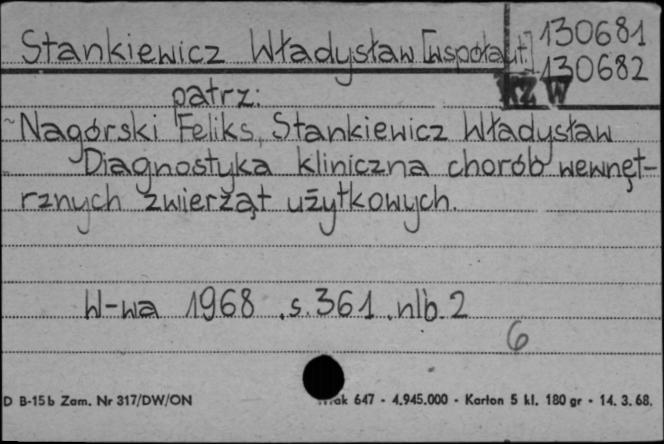 Stankiewicz Władysław [współaut.] 130681
130682
KZ W
patrz:
Nagórski Feliks, Stankiewicz Władysław
Diagnostyka kliniczna chorób wewnęt-
rznych zwierząt użytkowych.
W-wa 1968 .s. 361 .nlb. 2
6
D B-15b Zam. Nr 317/DW/ON 647 - 4.945.000 - Karton 5 kl. 180 gr - 14. 3. 68.